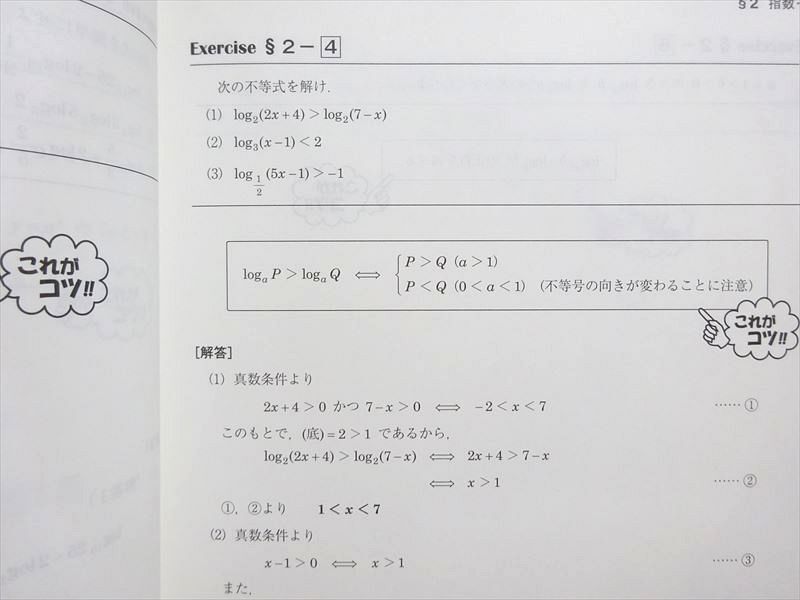 §2 指数・
Exercise §2-4
次の不等式を解け.
(1) log₂(2x+4)>log₂(7-x)
(2) log₃(x-1)<2
(3) log_{1/2}(5x-1)>-1
logₐP>logₐQ ⟺ { P>Q (a>1)
P<Q (0<a<1) (不等号の向きが変わることに注意)
これが
コツ!!
これが
コツ!!
[解答]
(1) 真数条件より
2x+4>0 かつ 7-x>0 ⟺ -2<x<7 ……①
このもとで, (底)=2>1 であるから,
log₂(2x+4)>log₂(7-x) ⟺ 2x+4>7-x
⟺ x>1 ……②
①, ②より 1<x<7
(2) 真数条件より
x-1>0 ⟺ x>1 ……③
また,